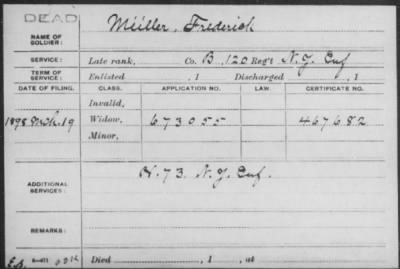 DEAD
NAME OF SOLDIER: Müller, Frederick
SERVICE: Late rank, Co. B, 120 Reg't N.Y. Inf
TERM OF SERVICE: Enlisted , 1 Discharged , 1
DATE OF FILING. CLASS. APPLICATION NO. LAW. CERTIFICATE NO.
Invalid,
1898 Mch. 19 Widow, 673055 467682
Minor,
ADDITIONAL SERVICES: H. 73. N.Y. Inf.
REMARKS:
Died , 1 , 180